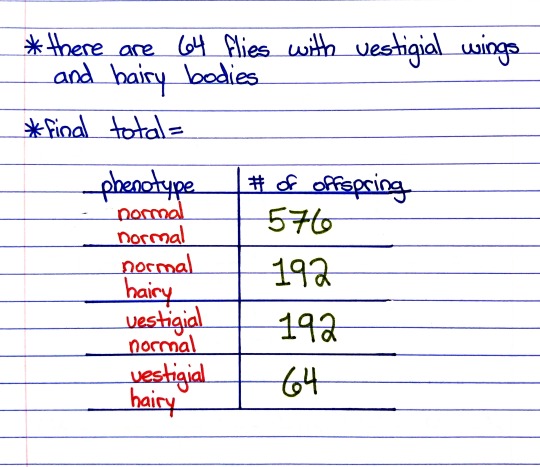 *there are 64 flies with vestigial wings
and hairy bodies
*final total=
phenotype # of offspring
normal
normal 576
normal
hairy 192
vestigial
normal 192
vestigial
hairy 64